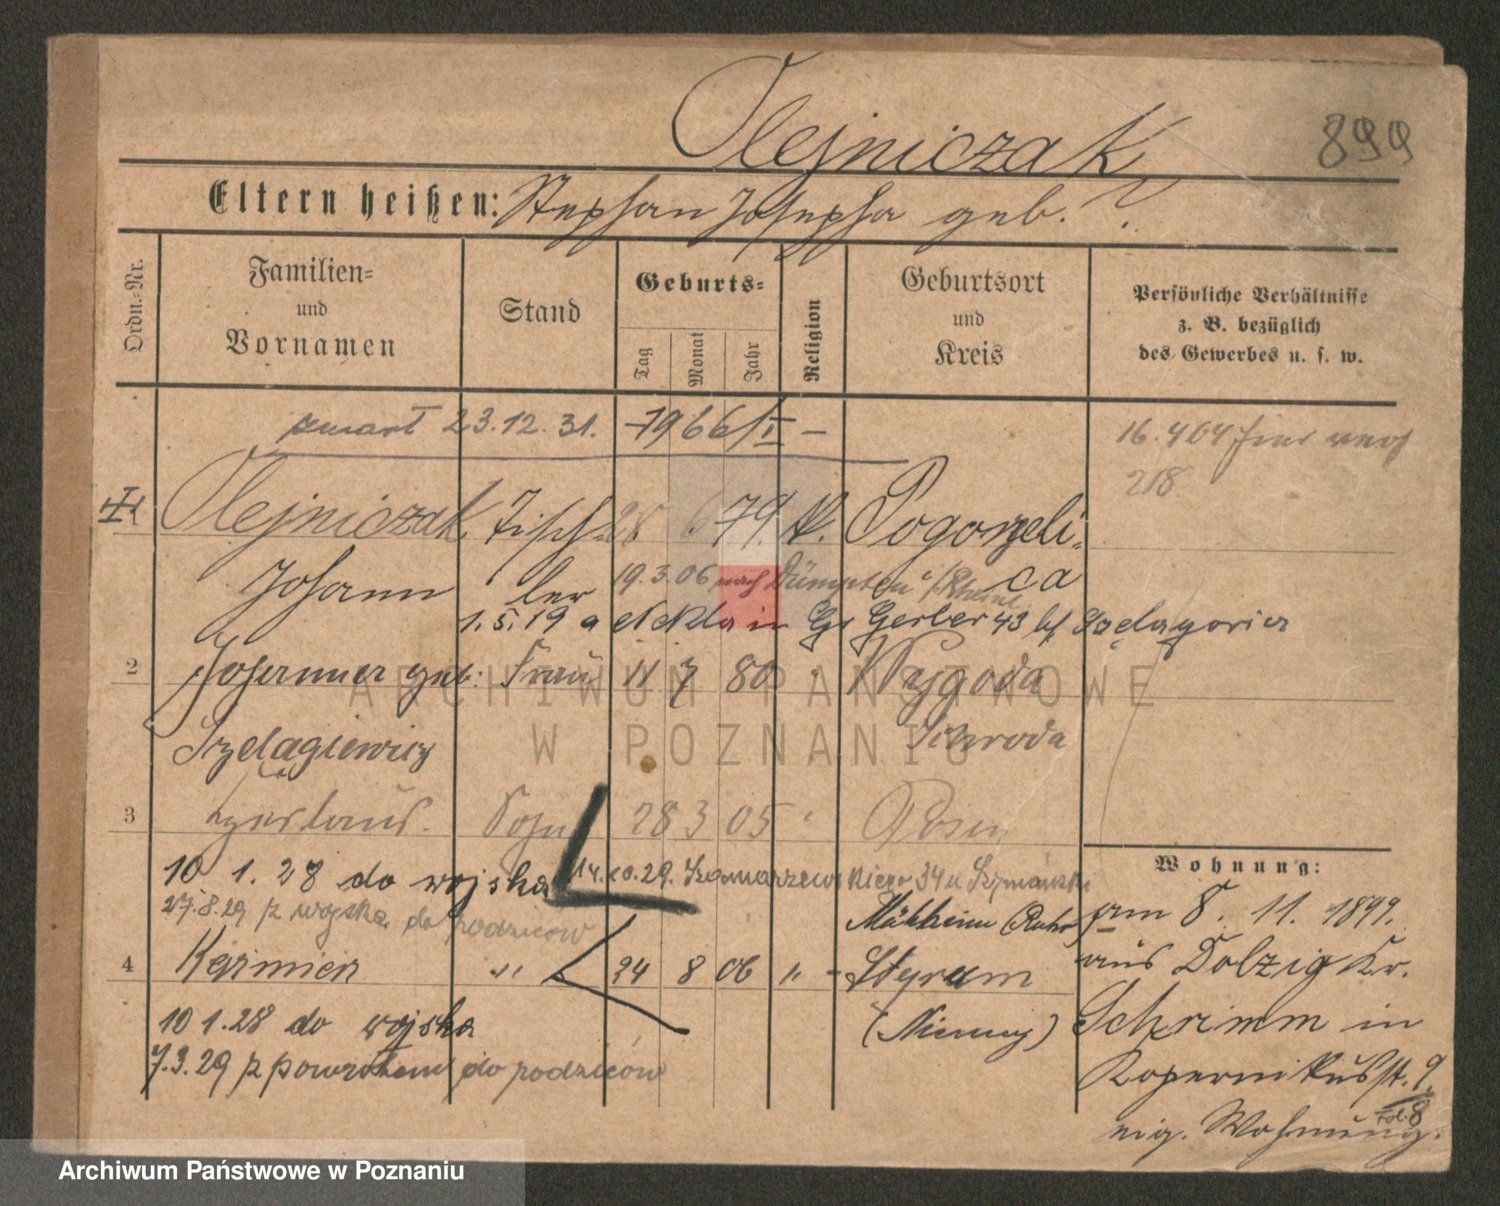 Olejniczak
899
Eltern heißen: Stephan Josepha geb. ?
Ordn.-Nr.
Familien- und Vornamen
Stand
Geburts-
Tag
Monat
Jahr
Religion
Geburtsort und Kreis
Persönliche Verhältnisse z. B. bezüglich des Gewerbes u. s. w.
zmarł 23.12.31. 1966/I –
16.404
218
1 Olejniczak Tisch- 28 6 79. k. Pogorzeli-
Johann ler ca
19.3.06 nach Dümpten /Rheinl
1.5.19 a
Gerber 43 bf Szelągowicz
2 Johanna geb. Frau 11 7 80 " Wygoda
Szelągiewicz Schroda
3 Czeslaus. Sohn 28 3 05 " Posen
10 1. 28 do wojska 14.10.29. 34 u Szymański
27.8.29 z wojska do rodziców
Mülheim (Ruhr)
4 Kazimierz " 24 8 06 " Styrum
10 1.28 do wojska
7.3.29 z powrotem do rodziców
Wohnung:
am 8. 11. 1899.
aus Dolzig Kr.
Schrimm in
Kopernikusst. 9.
eig. Wohnung.
Fol. 8
ARCHIWUM PAŃSTWOWE
W POZNANIU
Archiwum Państwowe w Poznaniu